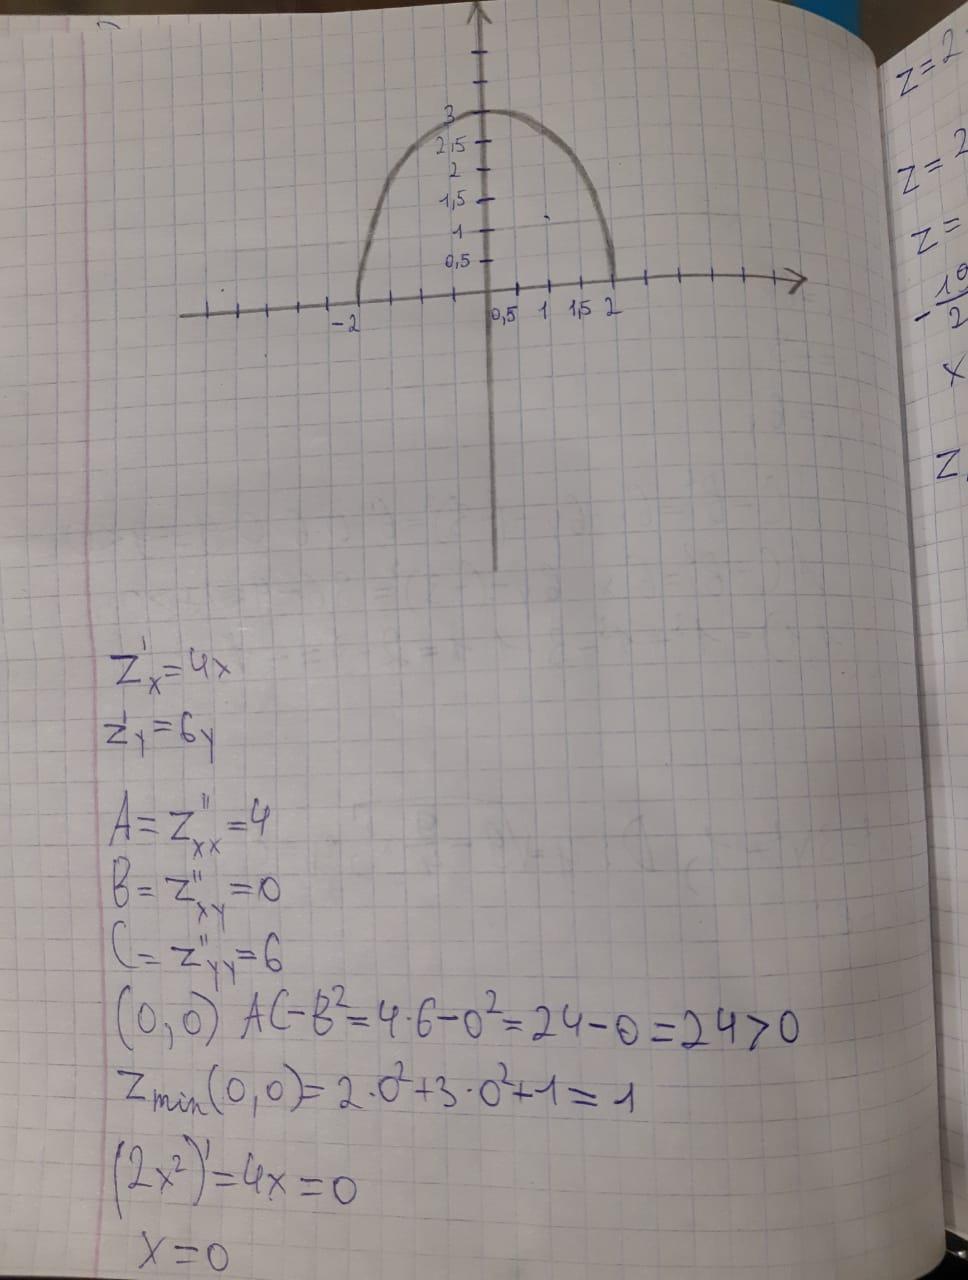 3
2,5
2
1,5
1
0,5
-2 0,5 1 1,5 2
z'x = 4x
z'y = 6y
A = z''xx = 4
B = z''xy = 0
C = z''yy = 6
(0,0) AC-B² = 4·6-0² = 24-0 = 24 > 0
zmin(0,0) = 2·0²+3·0²+1 = 1
(2x²)' = 4x = 0
x = 0
z = 2
z = 2
z =
x
z